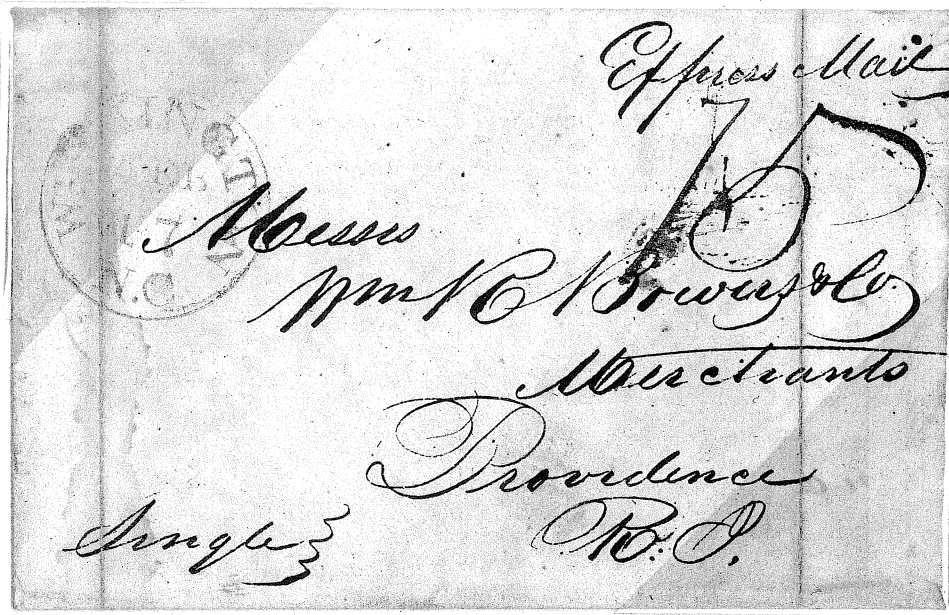 Express Mail
75
WASHINGTON
N.C
Messrs
Wm H Bowers & Co.
Merchants
Providence
R. I.
Single